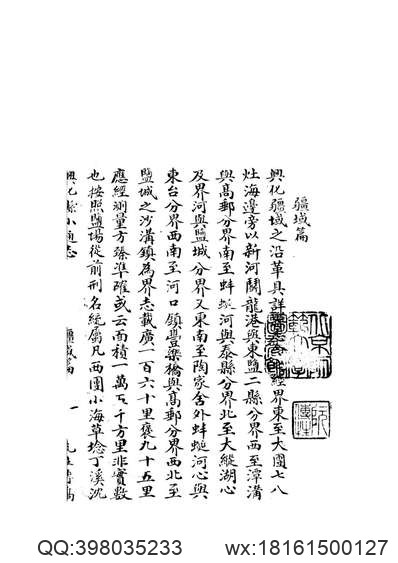 疆域篇
興化疆域之沿革具詳經界東至大團七八
灶海邊旁以新河鬭龍港與東鹽二縣分界西至潭溝
與高郵分界南至蚌蜒河與泰縣分界北至大縱湖心
及界河與鹽城分界又東南至陶家舍外蚌蜒河心與
東台分界西南至河口鎮豐樂橋與高郵分界西北至
鹽城之沙溝鎮為界志載廣一百六十里袤九十五里
應經測量方臻準確或云面積一萬五千方里非實數
也按照鹽場從前刑名統屬凡西團小海草堰丁溪沈
興化縣小通志
疆域篇
一
QQ:398035233
wx:18161500127